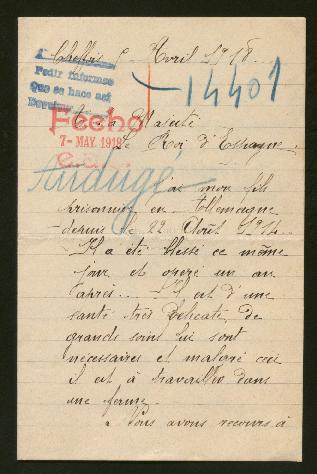 Avril 1918.
Pedir informes
que se hace asi
14401
Sa Majesté
Fecho
7- MAY. 1918
Le Roi d'Espagne.
J'ai mon fils
prisonnier en Allemagne
depuis le 22 Août 1914.
Il a été blessé ce même
jour et operé un an
après. Il est d'une
santé très délicate, de
grands soins lui sont
nécessaires et malgré ceci
il est à travailler dans
une ferme.
Nous avons recours à